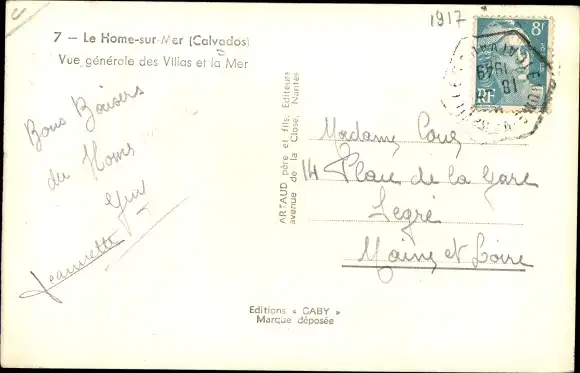 1917
7 — Le Home-sur-Mer (Calvados)
Vue générale des Villas et la Mer
8F
RF
18
1949
CALVADOS
Bons Baisers
du Home
Guy
Jeannette
ARTAUD père et fils, Editeurs
avenue de la Close, Nantes
Madame
14 Place de la Gare
Segré
Maine et Loire
Editions « GABY »
Marque déposée